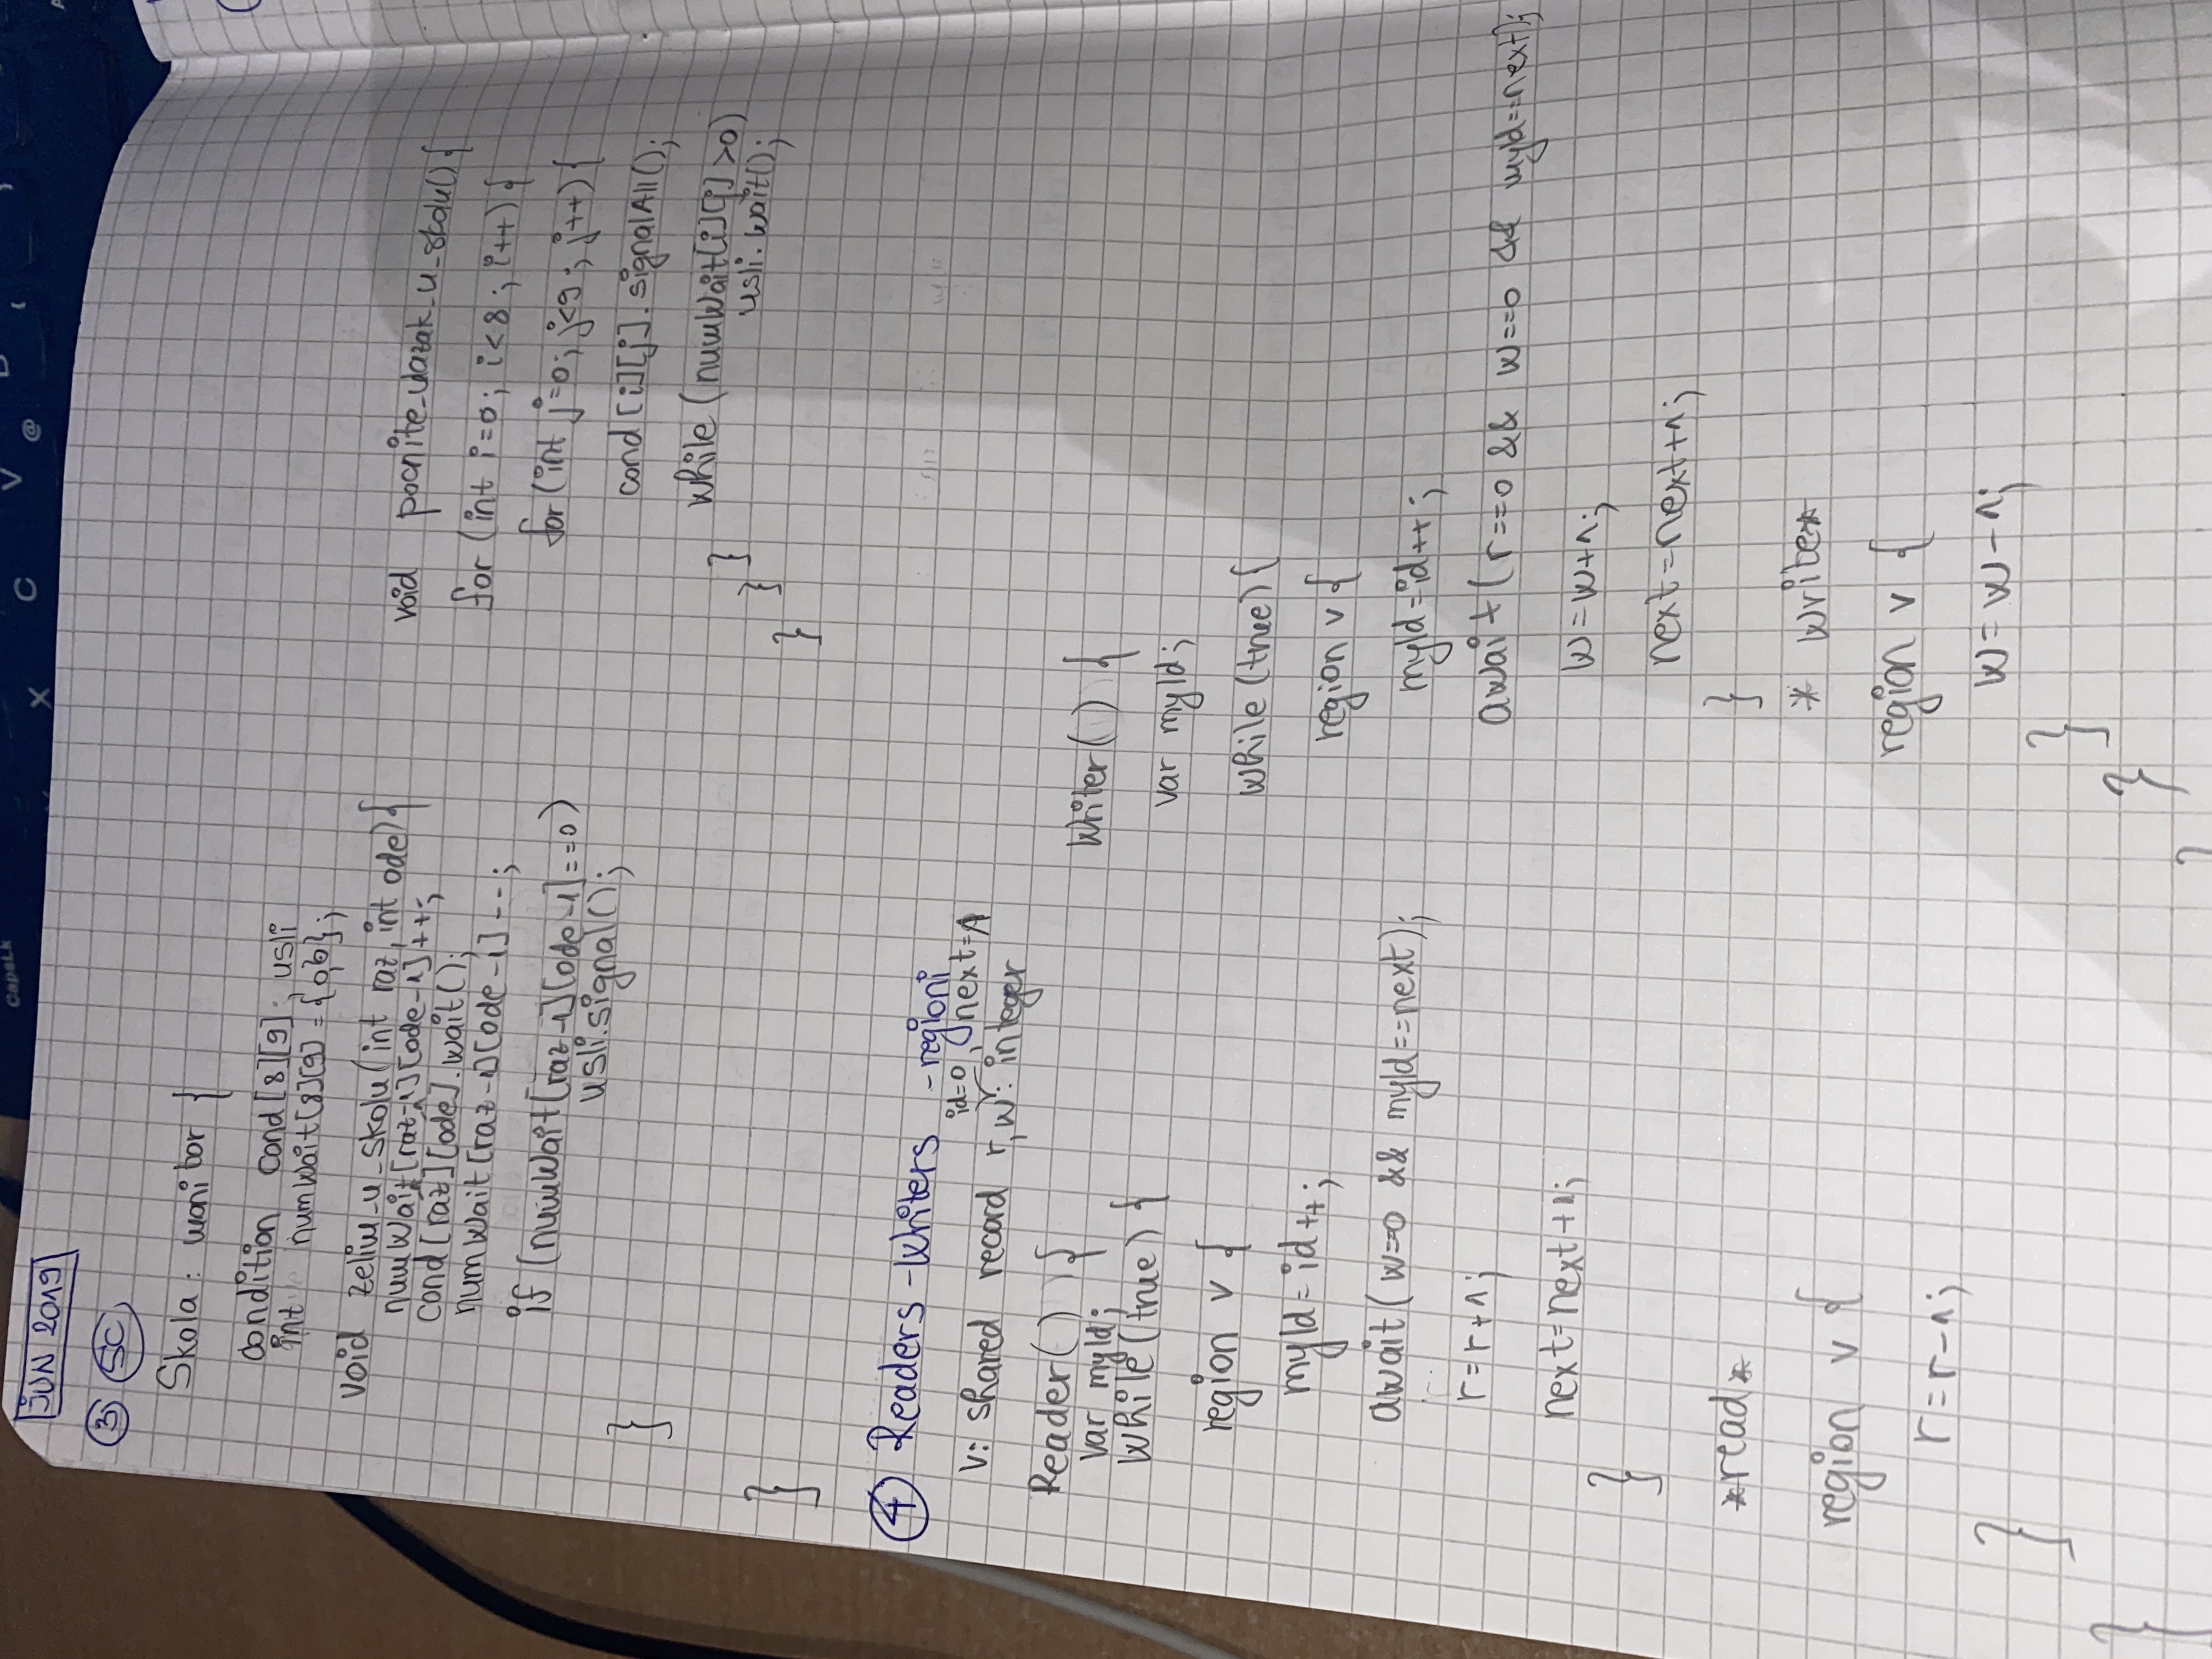 CapsLk
X C V @
JUN 2019
3 SC
Skola: monitor {
condition cond[8][9]; usli
int numWait[8][9] = {0,0};
void zelim_u_skolu(int raz, int ode){
numWait[raz-1][ode-1]++;
cond[raz][ode].wait();
numWait[raz-1][ode-1]--;
if (numWait[raz-1][ode-1]==0)
usli.signal();
}
}
void pocnite_ulazak_u_skolu(){
for (int i=0; i<8; i++){
for(int j=0; j<9; j++){
cond[i][j].signalAll();
while(numWait[i][j]>0)
usli.wait();
}
}
}
4 Readers-Writers -regioni
id=0, next=1
v: shared record r,w: integer
Reader() {
var myId;
while(true) {
region v {
myId=id++;
await(w==0 && myId==next);
r=r+1;
next=next+1;
}
*read*
region v {
r=r-1;
}
}
Writer() {
var myId;
while(true){
region v{
myId=id++;
await(r==0 && w==0 && myId==next);
w=w+1;
next=next+1;
}
* write*
region v {
w=w-1;
}
}